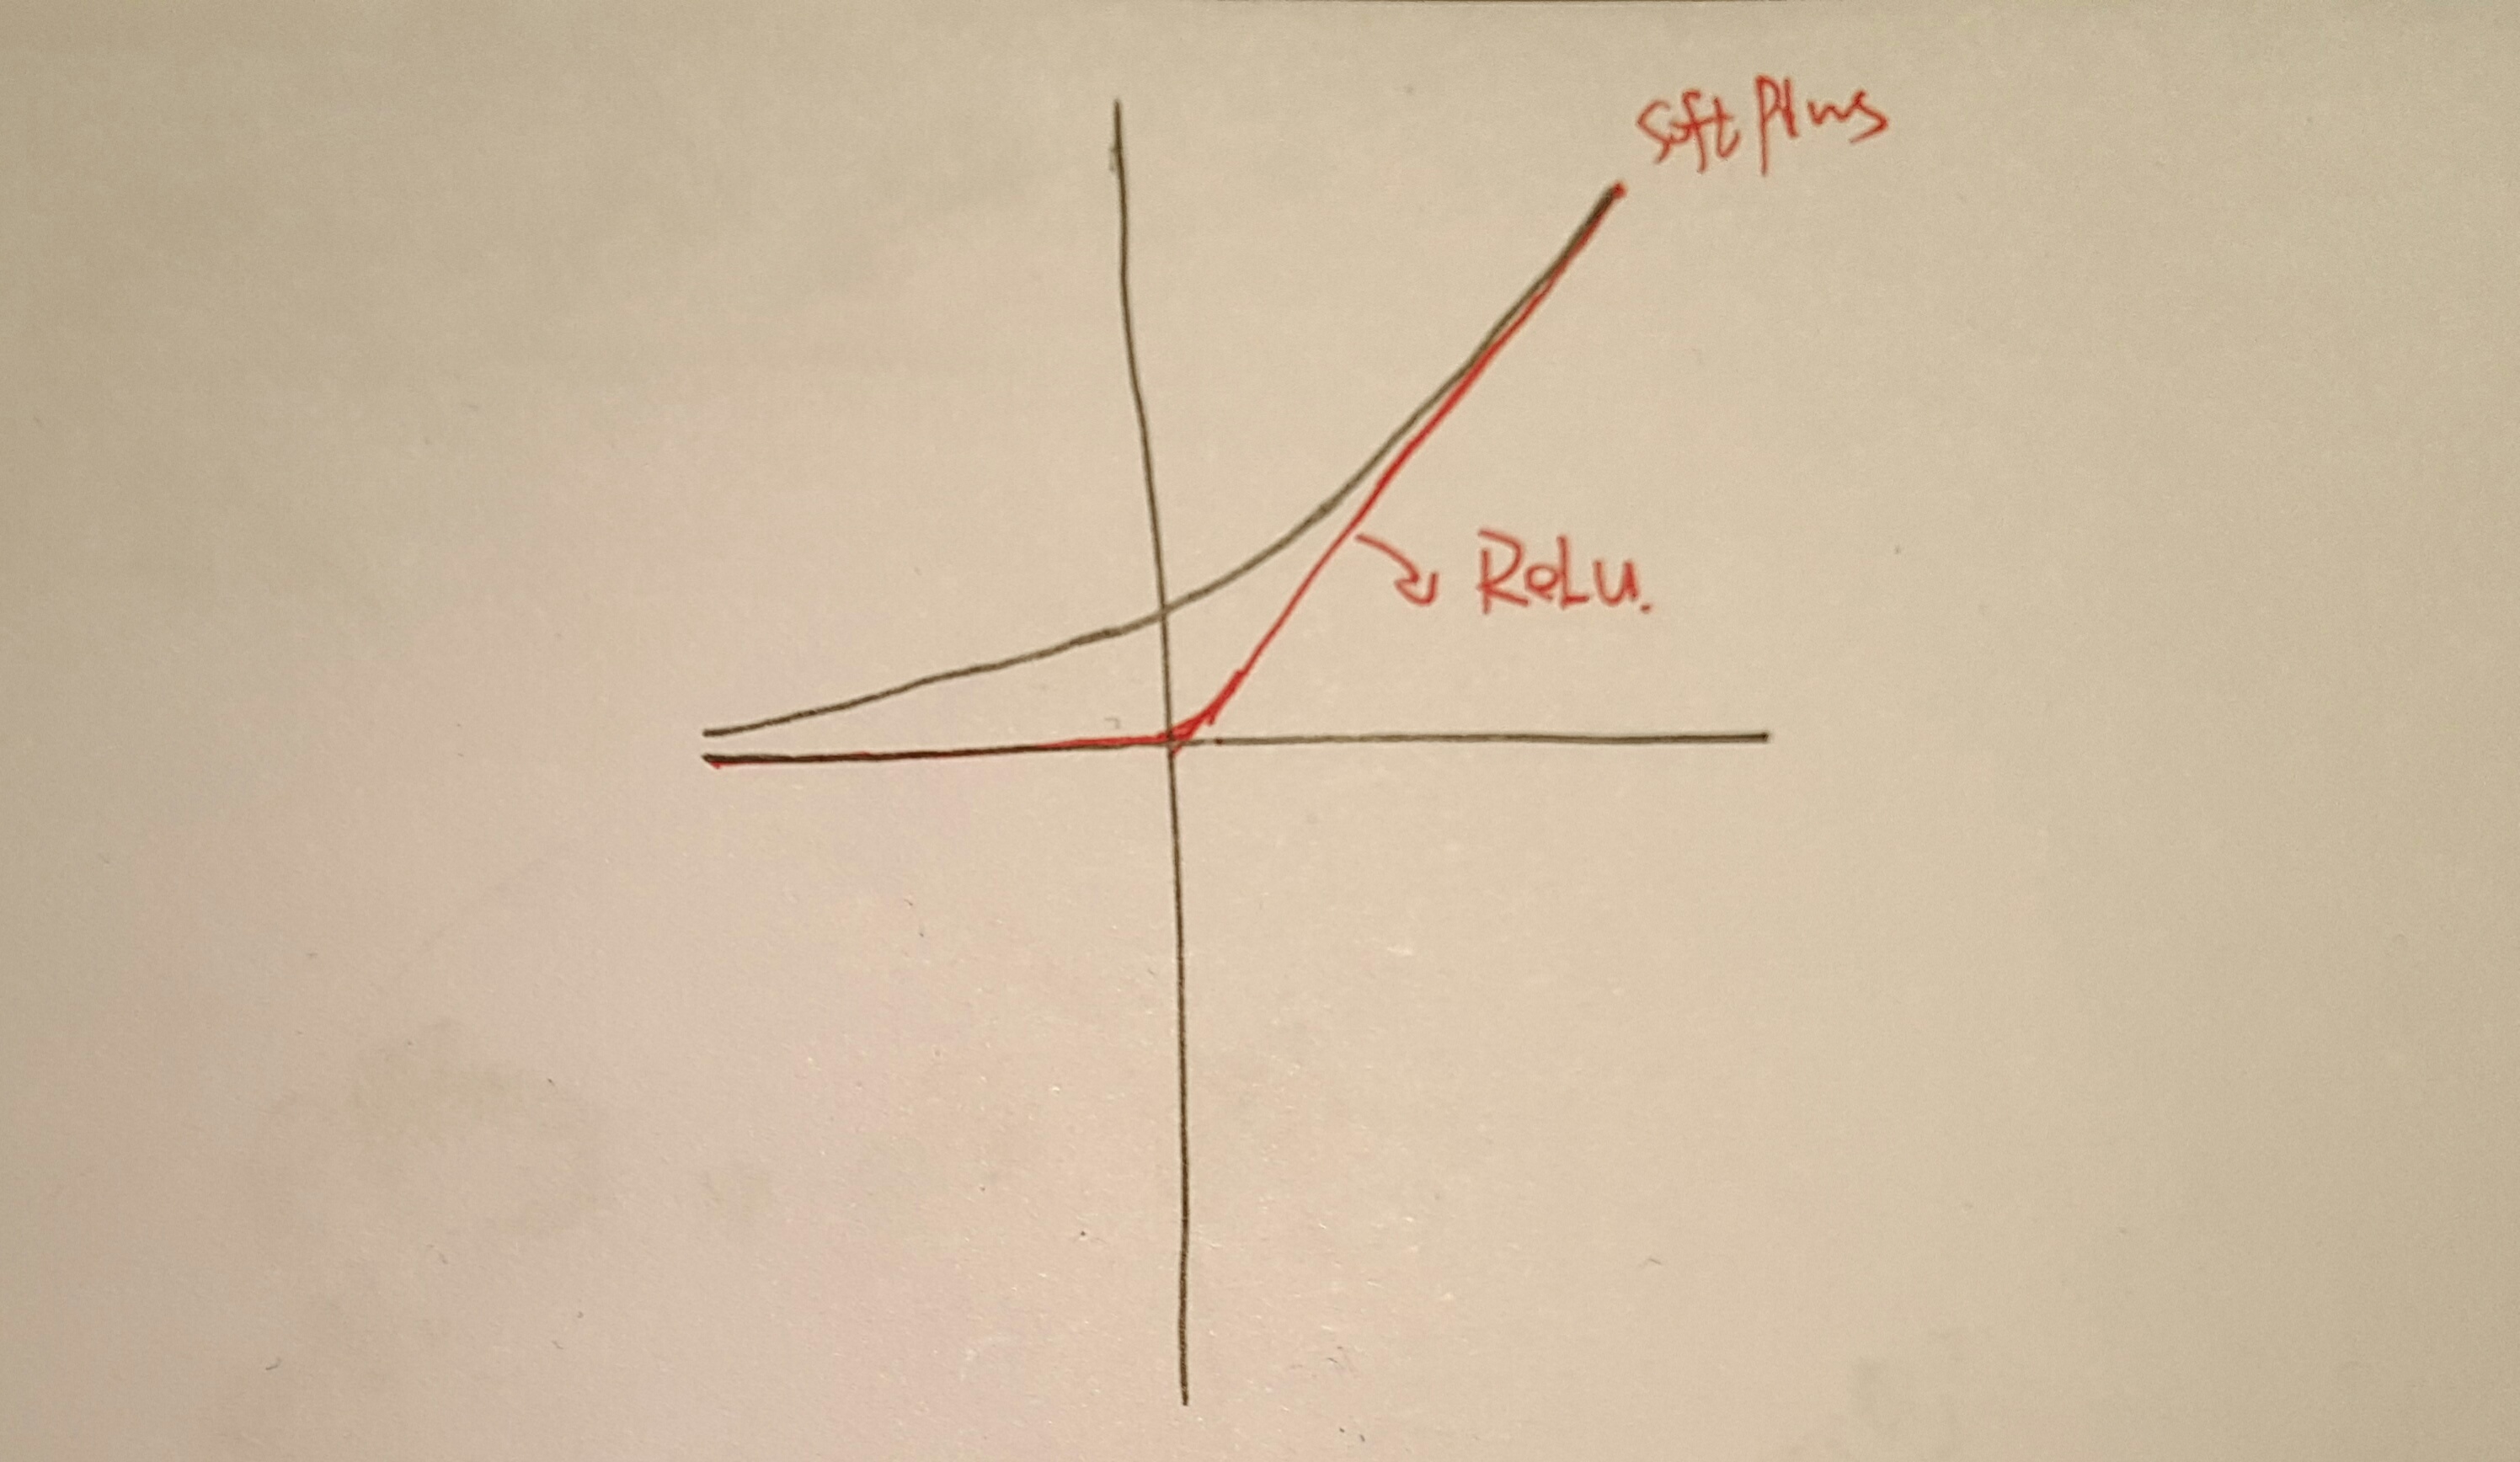 Soft Plus
ReLu.